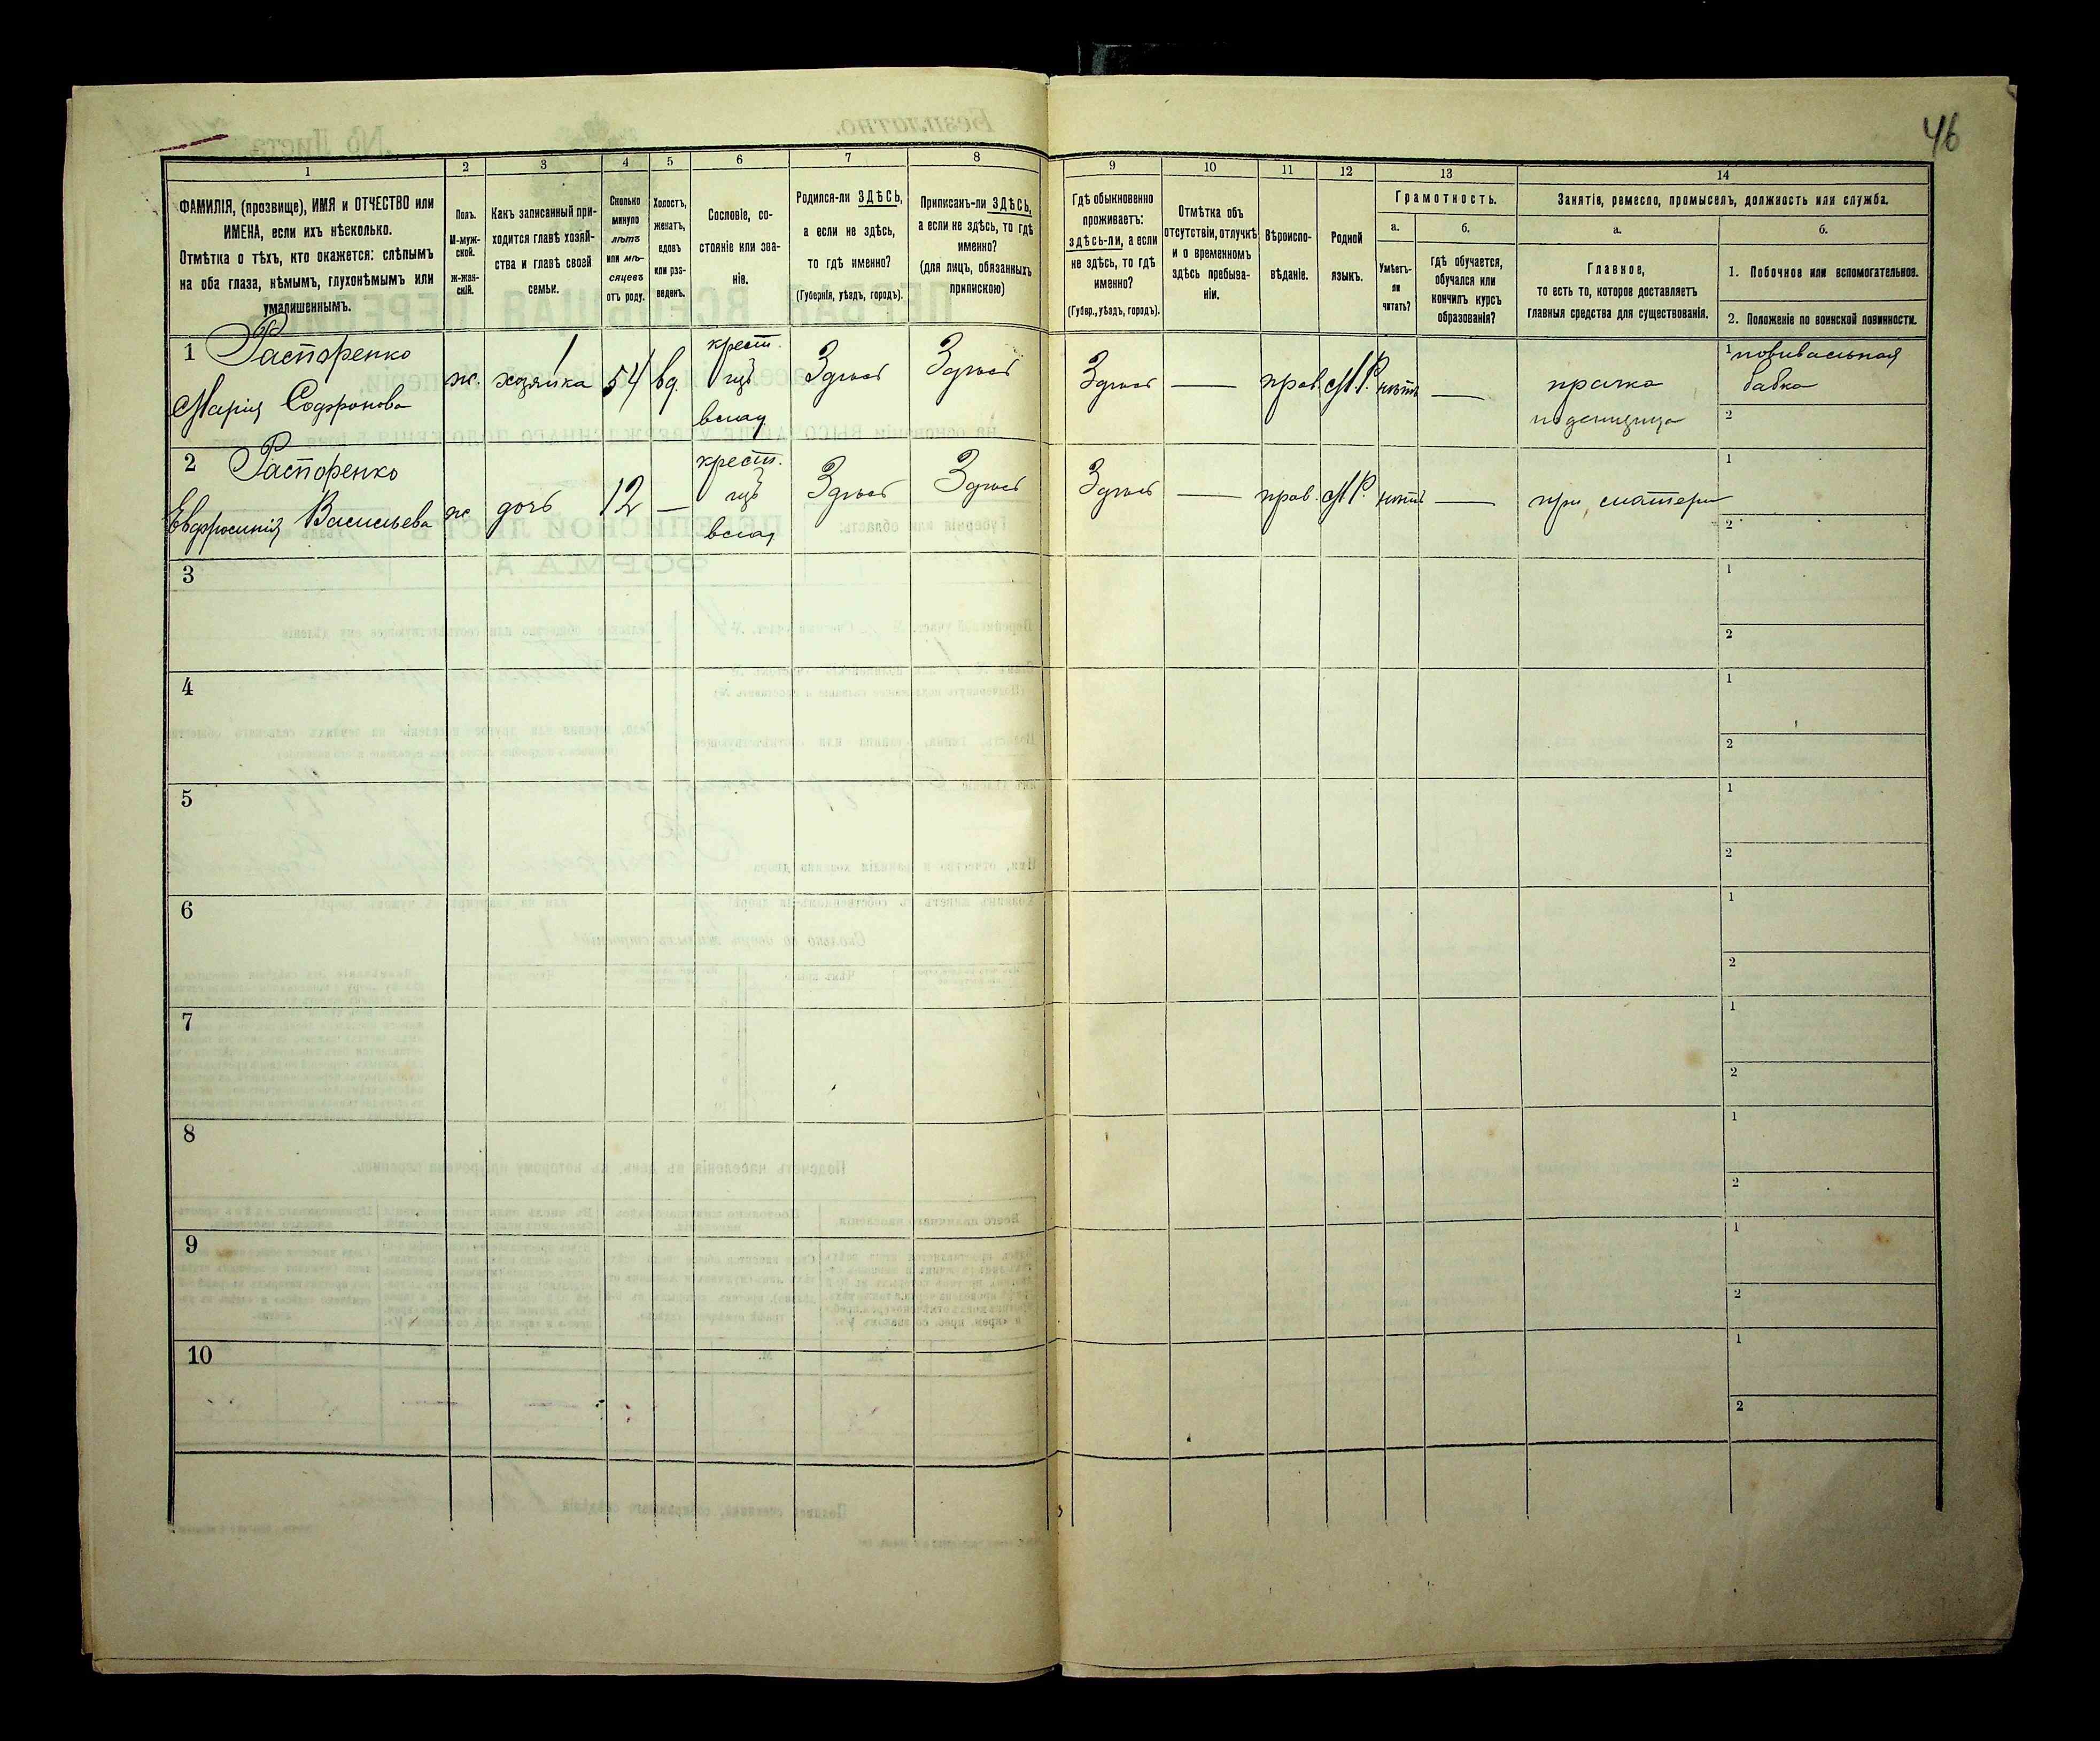 46
1 2 3 4 5 6 7 8 9 10 11 12 13 14
ФАМИЛІЯ, (прозвище), ИМЯ и ОТЧЕСТВО или
ИМЕНА, если ихъ нѣсколько.
Отмѣтка о тѣхъ, кто окажется: слѣпымъ
на оба глаза, нѣмымъ, глухонѣмымъ или
умалишеннымъ.
Полъ.
М-муж-
ской.
Ж-жен-
скій.
Какъ записанный при-
ходится главѣ хозяй-
ства и главѣ своей
семьи.
Сколько
минуло
лѣтъ
или мѣ-
сяцевъ
отъ роду.
Холостъ,
женатъ,
вдовъ
или раз-
веденъ.
Сословіе, со-
стояніе или зва-
ніе.
Родился-ли ЗДѢСЬ,
а если не здѣсь,
то гдѣ именно?
(Губернія, уѣздъ, городъ).
Приписанъ-ли ЗДѢСЬ,
а если не здѣсь, то гдѣ
именно?
(для лицъ, обязанныхъ
припискою)
Гдѣ обыкновенно
проживаетъ:
здѣсь-ли, а если
не здѣсь, то гдѣ
именно?
(Губер., уѣздъ, городъ).
Отмѣтка объ
отсутствіи, отлучкѣ
и о временномъ
здѣсь пребыва-
ніи.
Вѣроиспо-
вѣданіе.
Родной
языкъ.
Грамотность.
а.
Умѣетъ-
ли
читать?
б.
гдѣ обучается,
обучался или
кончилъ курсъ
образованія?
Занятіе, ремесло, промыселъ, должность или служба.
а.
Главное,
то есть то, которое доставляетъ
главныя средства для существованія.
б.
1. Побочное или вспомогательное.
2. Положеніе по воинской повинности.
1 Распоренко
Марія Софронова
ж. хозяйка 54 вд.
крест.
изъ
влад
Здѣсь Здѣсь Здѣсь — прав. М.Р. нѣтъ —
прачка
поденщица
1 повивальная
бабка
2
2 Распоренко
Евфросинія Васильева
ж дочь 12 —
крест.
изъ
влад
Здѣсь Здѣсь Здѣсь — прав. М.Р. нѣтъ — при матери
1
2
3
1
2
4
1
2
5
1
2
6
1
2
7
1
2
8
1
2
9
1
2
10
1
2